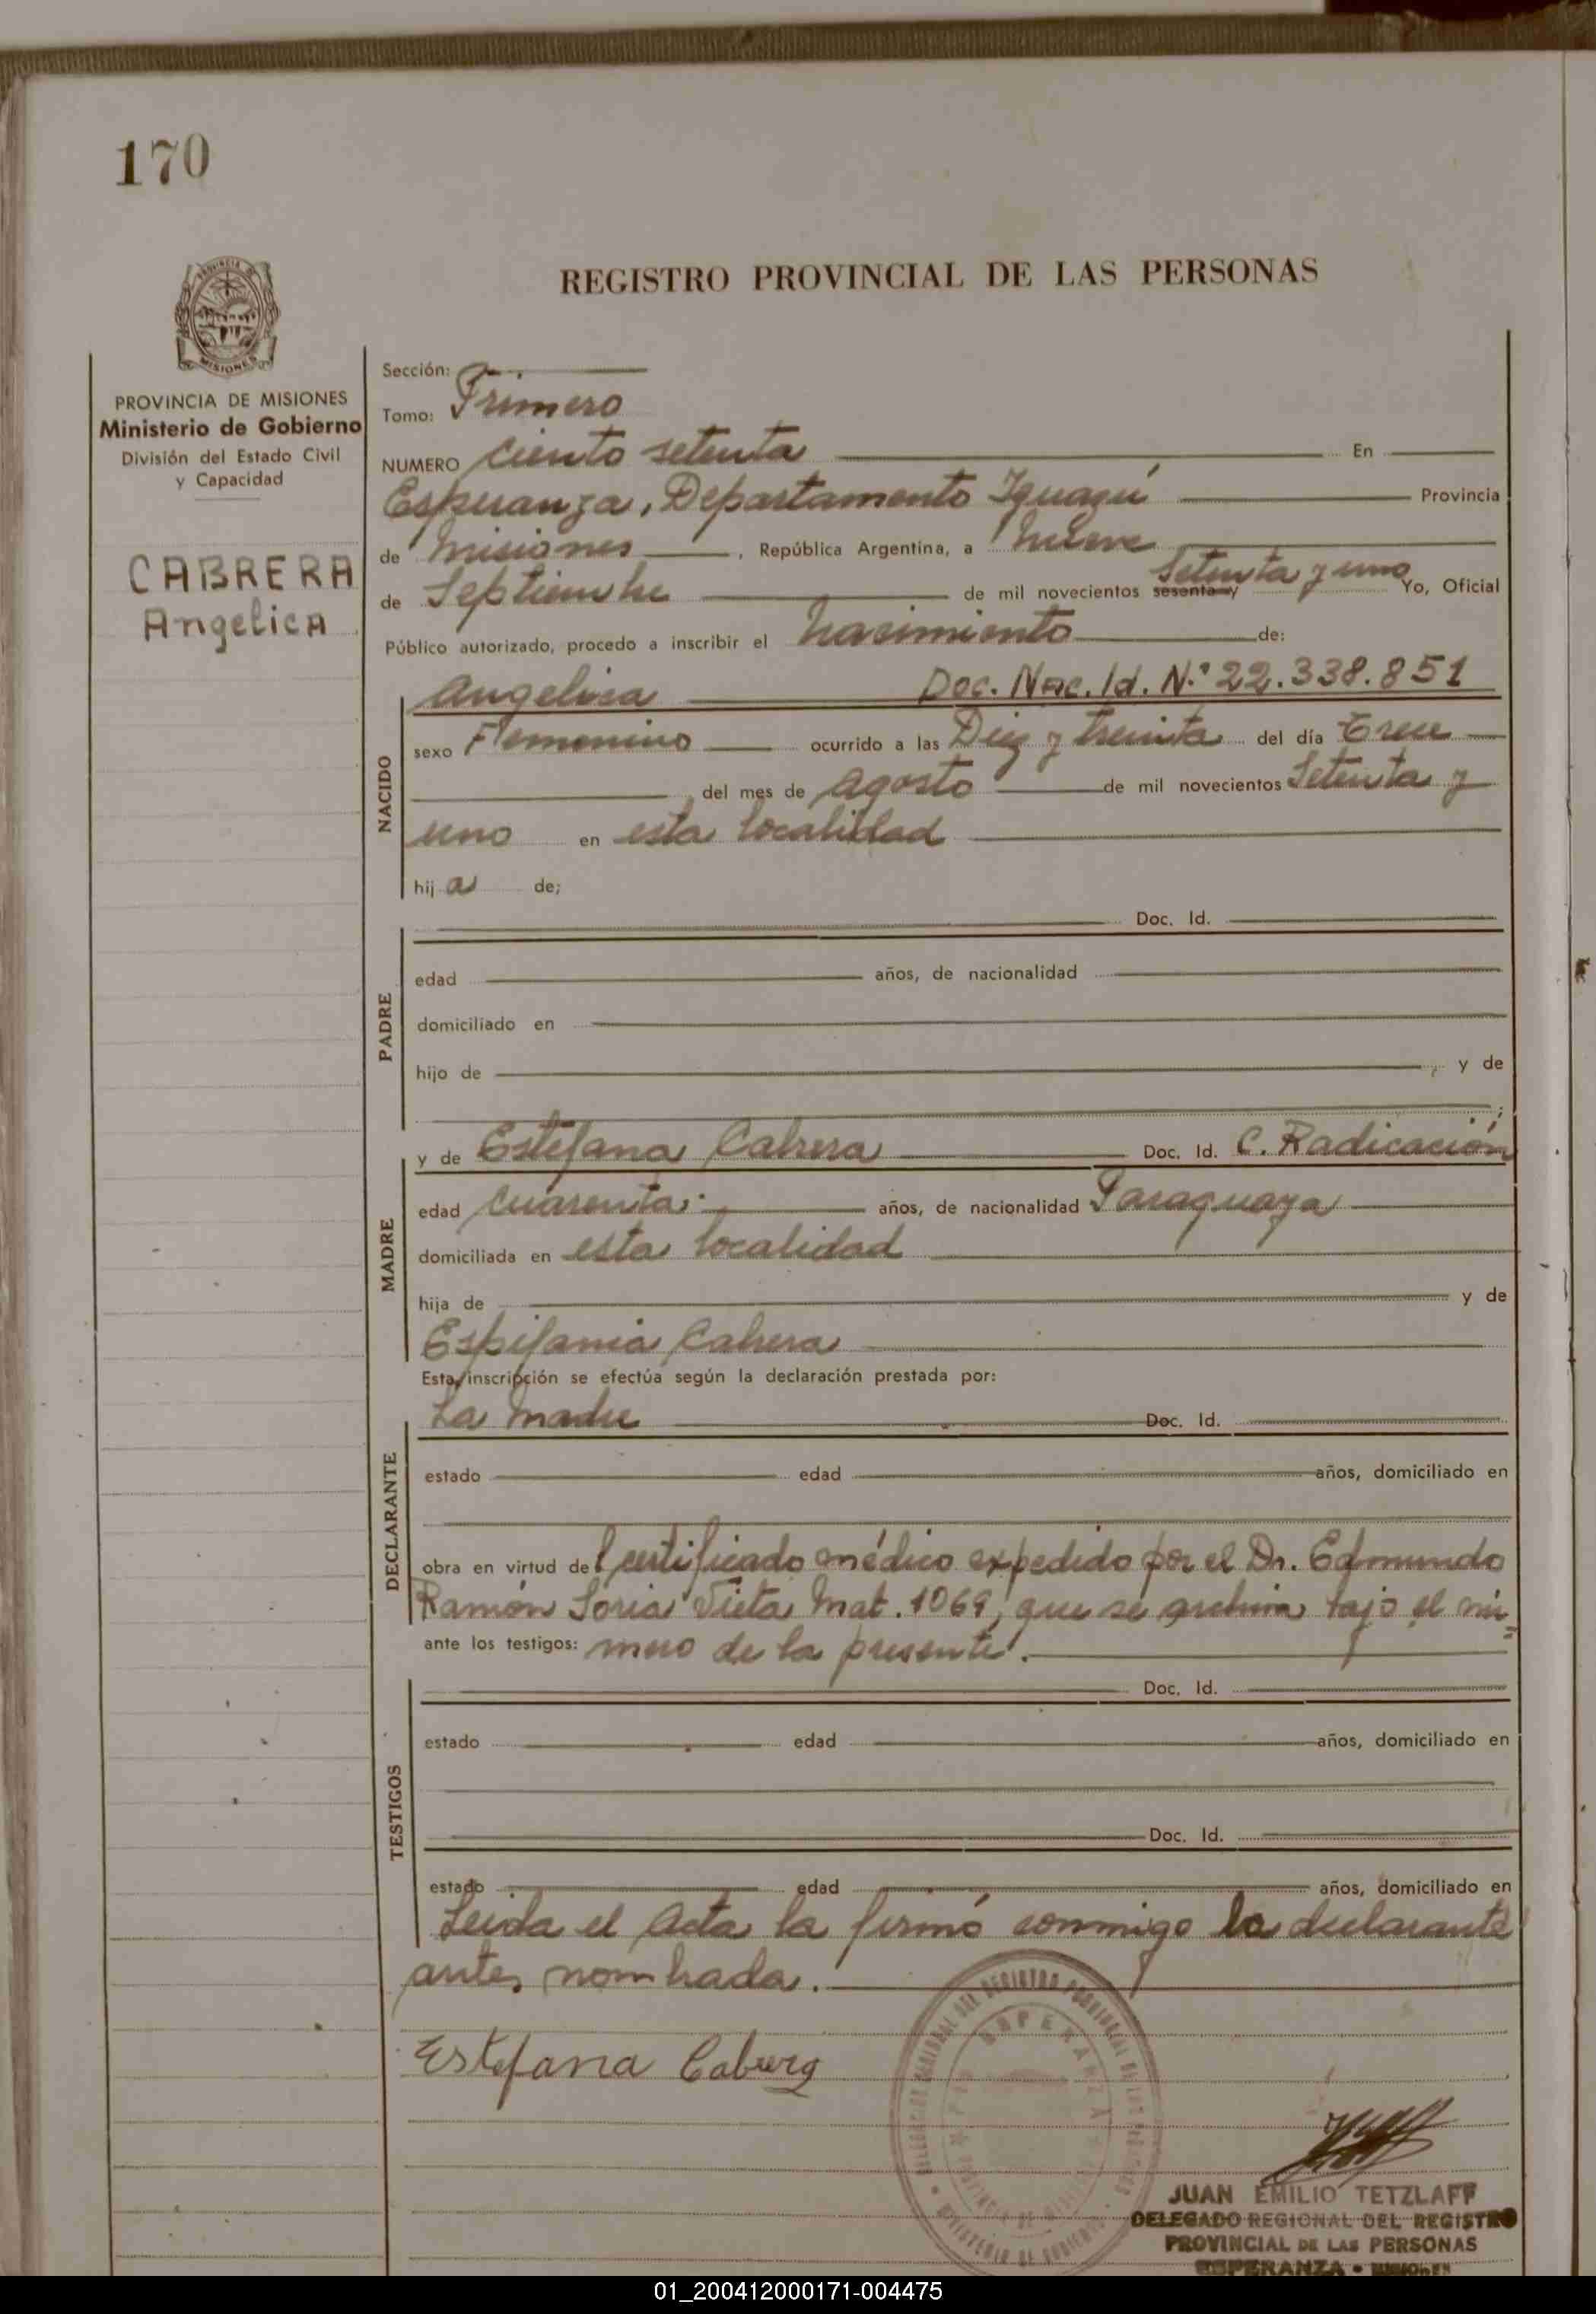 170
REGISTRO PROVINCIAL DE LAS PERSONAS
PROVINCIA DE
MISIONES
PROVINCIA DE MISIONES
Ministerio de Gobierno
División del Estado Civil
y Capacidad
CABRERA
Angelica
Sección:
Tomo: Primero
NUMERO Ciento setenta En
Esperanza, Departamento Iguazú Provincia
de Misiones, República Argentina, a Nueve
de Septiembre de mil novecientos sesenta y Setenta y uno Yo, Oficial
Público autorizado, procedo a inscribir el Nacimiento de:
Angelica Doc. Nac. Id. N.º 22.338.851
NACIDO
sexo Femenino ocurrido a las Diez y treinta del día Trece
del mes de Agosto de mil novecientos Setenta y
uno en esta localidad
hij a de;
PADRE
Doc. Id.
edad años, de nacionalidad
domiciliado en
hijo de , y de
;
MADRE
y de Estefana Cabrera Doc. Id. C. Radicación
edad Cuarenta años, de nacionalidad Paraguaya
domiciliada en esta localidad
hija de y de
Espifania Cabrera
Esta inscripción se efectúa según la declaración prestada por:
DECLARANTE
La madre Doc. Id.
estado edad años, domiciliado en
obra en virtud del certificado médico expedido por el Dr. Edmundo
Ramón Soria Vieta Mat. 1069, que se archiva bajo el nú=
ante los testigos: mero de la presente.
TESTIGOS
Doc. Id.
estado edad años, domiciliado en
Doc. Id.
estado edad años, domiciliado en
Leida el Acta la firmó conmigo la declarante
antes nombrada.
Estefana Cabrera
ESPERANZA
JUAN EMILIO TETZLAFF
DELEGADO REGIONAL DEL REGISTRO
PROVINCIAL DE LAS PERSONAS
ESPERANZA - MISIONES
01_200412000171-004475